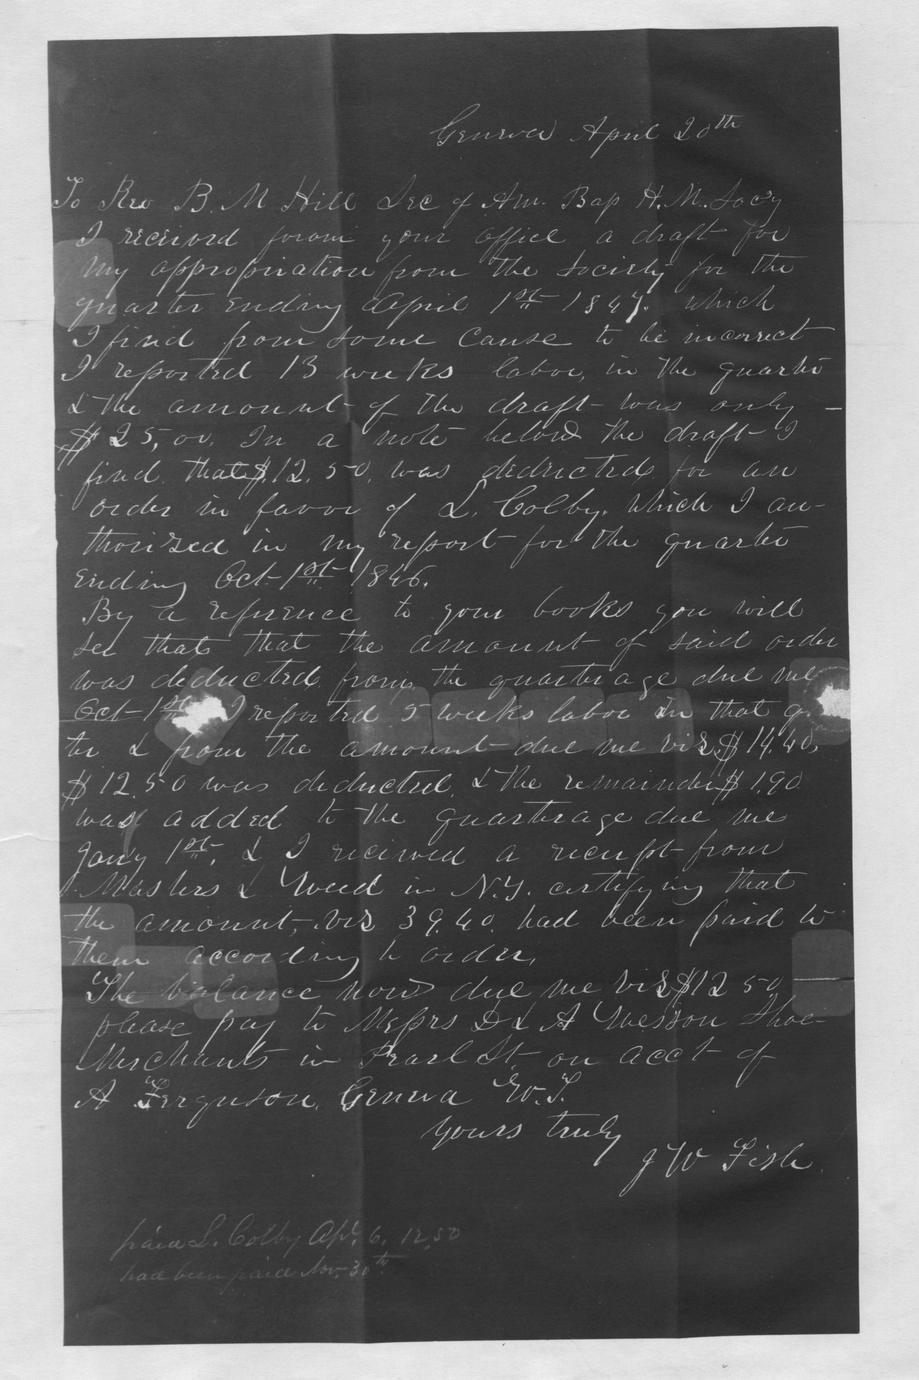 Geneva April 20th
To Rev B. M Hill Sec of Am. Bap H. M. Socy
I recieved forom your office a draft for
My appropiration from the Society for the
quarter ending April 1st 1847. which
I find from some cause to be incorrect
I reported 13 weeks labor, in the quarter
& the amount of the draft was only
$25,00. In a note below the draft I
find that $12.50, was deducted for an
order in favor of L. Colby. which I au-
thorized in my report for the quarter
ending Oct 1st 1846.
By a referience to your books you will
see that that the amount of said order
was deducted from the quarterage due me
Oct 1st I reported 5 weeks labor in that q-
ter & from the amount due me vis $14,40,
$12.50 was deducted, & the remainder $1.90
was added to the quarterage due me
Jany 1st. & I recieved a reciept from
Masters & Weed in N.Y. certifying that
the amount, vis 39.40. had been paid to
them accorling to order,
The balance now due me vis $12 50
please pay to Messrs D & A Wesson Shoe
Merchants in Pearl St. on acct of
A Ferguson. Geneva W. T.
Yours truly
J W Fish.
paid L. Colby Apl. 6. 12.50
had been paid Nov. 30th